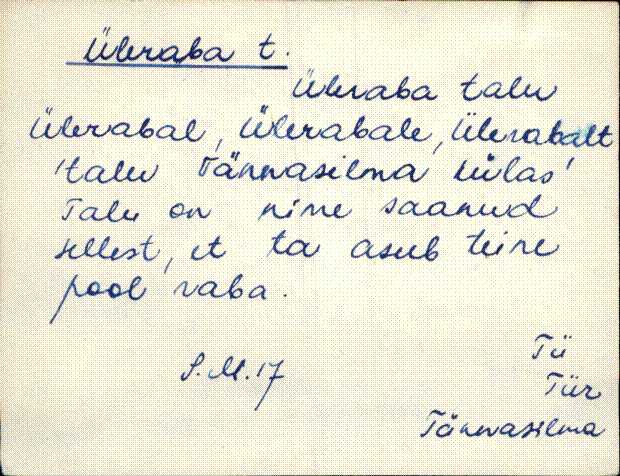 Üleraba t.
Üleraba talu
Ülerabal, Ülerabale, Ülerabalt
'talu Tännasilma külas'
Talu on nime saanud
sellest, et ta asub teine
pool raba.
S.M.17
Tü
Tür
Tännasilma